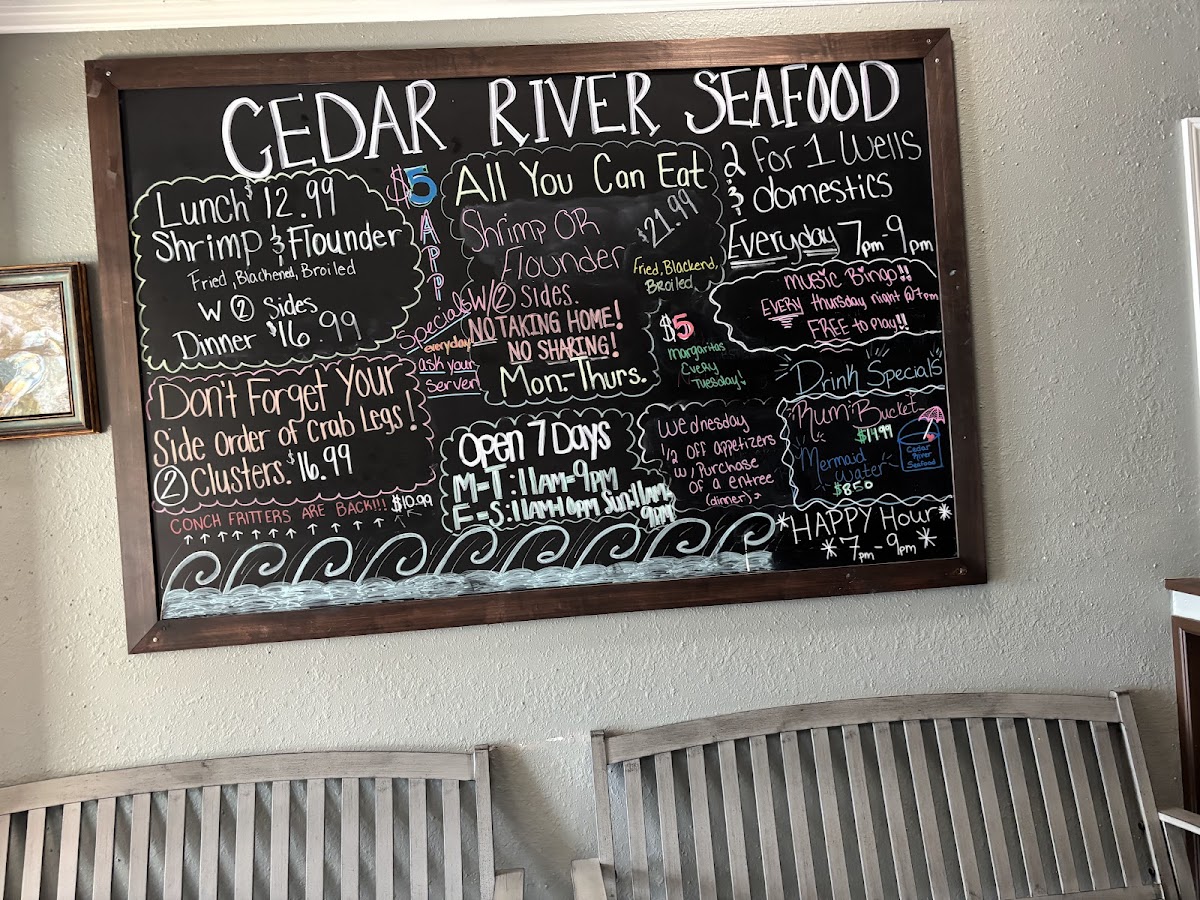 CEDAR RIVER SEAFOOD
Lunch $12.99
Shrimp & Flounder
Fried, Blackened, Broiled
W ② Sides
Dinner $16.99
$5
APP
Specials
everyday
ask your
server
All You Can Eat
Shrimp OR
Flounder
$21.99
Fried, Blackend,
Broiled
W/② Sides.
NO TAKING HOME!
NO SHARING!
Mon.-Thurs.
$5
Margaritas
Every
Tuesday!
2 for 1 Wells
& domestics
Everyday 7pm-9pm
Music Bingo!!
EVERY thursday night @7pm
FREE to play!!
Don't Forget Your
Side Order of Crab Legs!
② Clusters. $16.99
CONCH FRITTERS ARE BACK!!! $10.99
Open 7 Days
M-T: 11AM-9PM
F-S: 11AM-10PM Sun: 11AM-
9PM
Wednesday
1/2 off appetizers
w/ Purchase
of a entree
(dinner)
Drink Specials
Rum Bucket
$14.99
Mermaid
Water
$8.50
Cedar
River
Seafood
*HAPPY Hour*
*7pm-9pm*